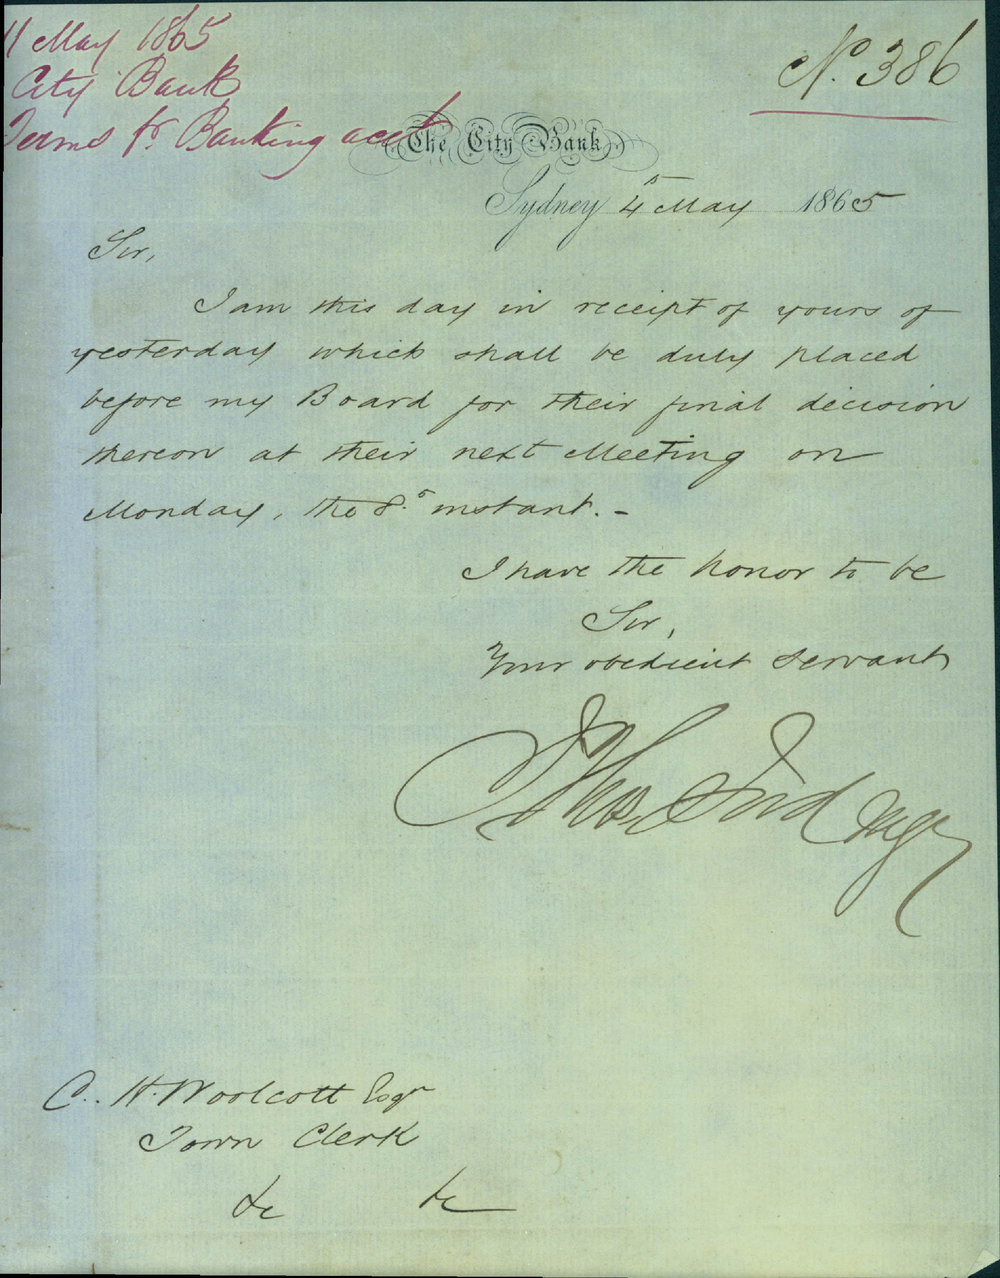 11 May 1865
City Bank
Terms fr. Banking acct
No. 386
The City Bank
Sydney 4th May 1865
Sir,
I am this day in receipt of yours of
yesterday which shall be duly placed
before my Board for their final decision
thereon at their next Meeting on
Monday, the 8th instant. -
I have the honor to be
Sir,
Your obedient servant
Thos. Ford mgr
C. H. Woolcott Esqr
Town Clerk
&c &c